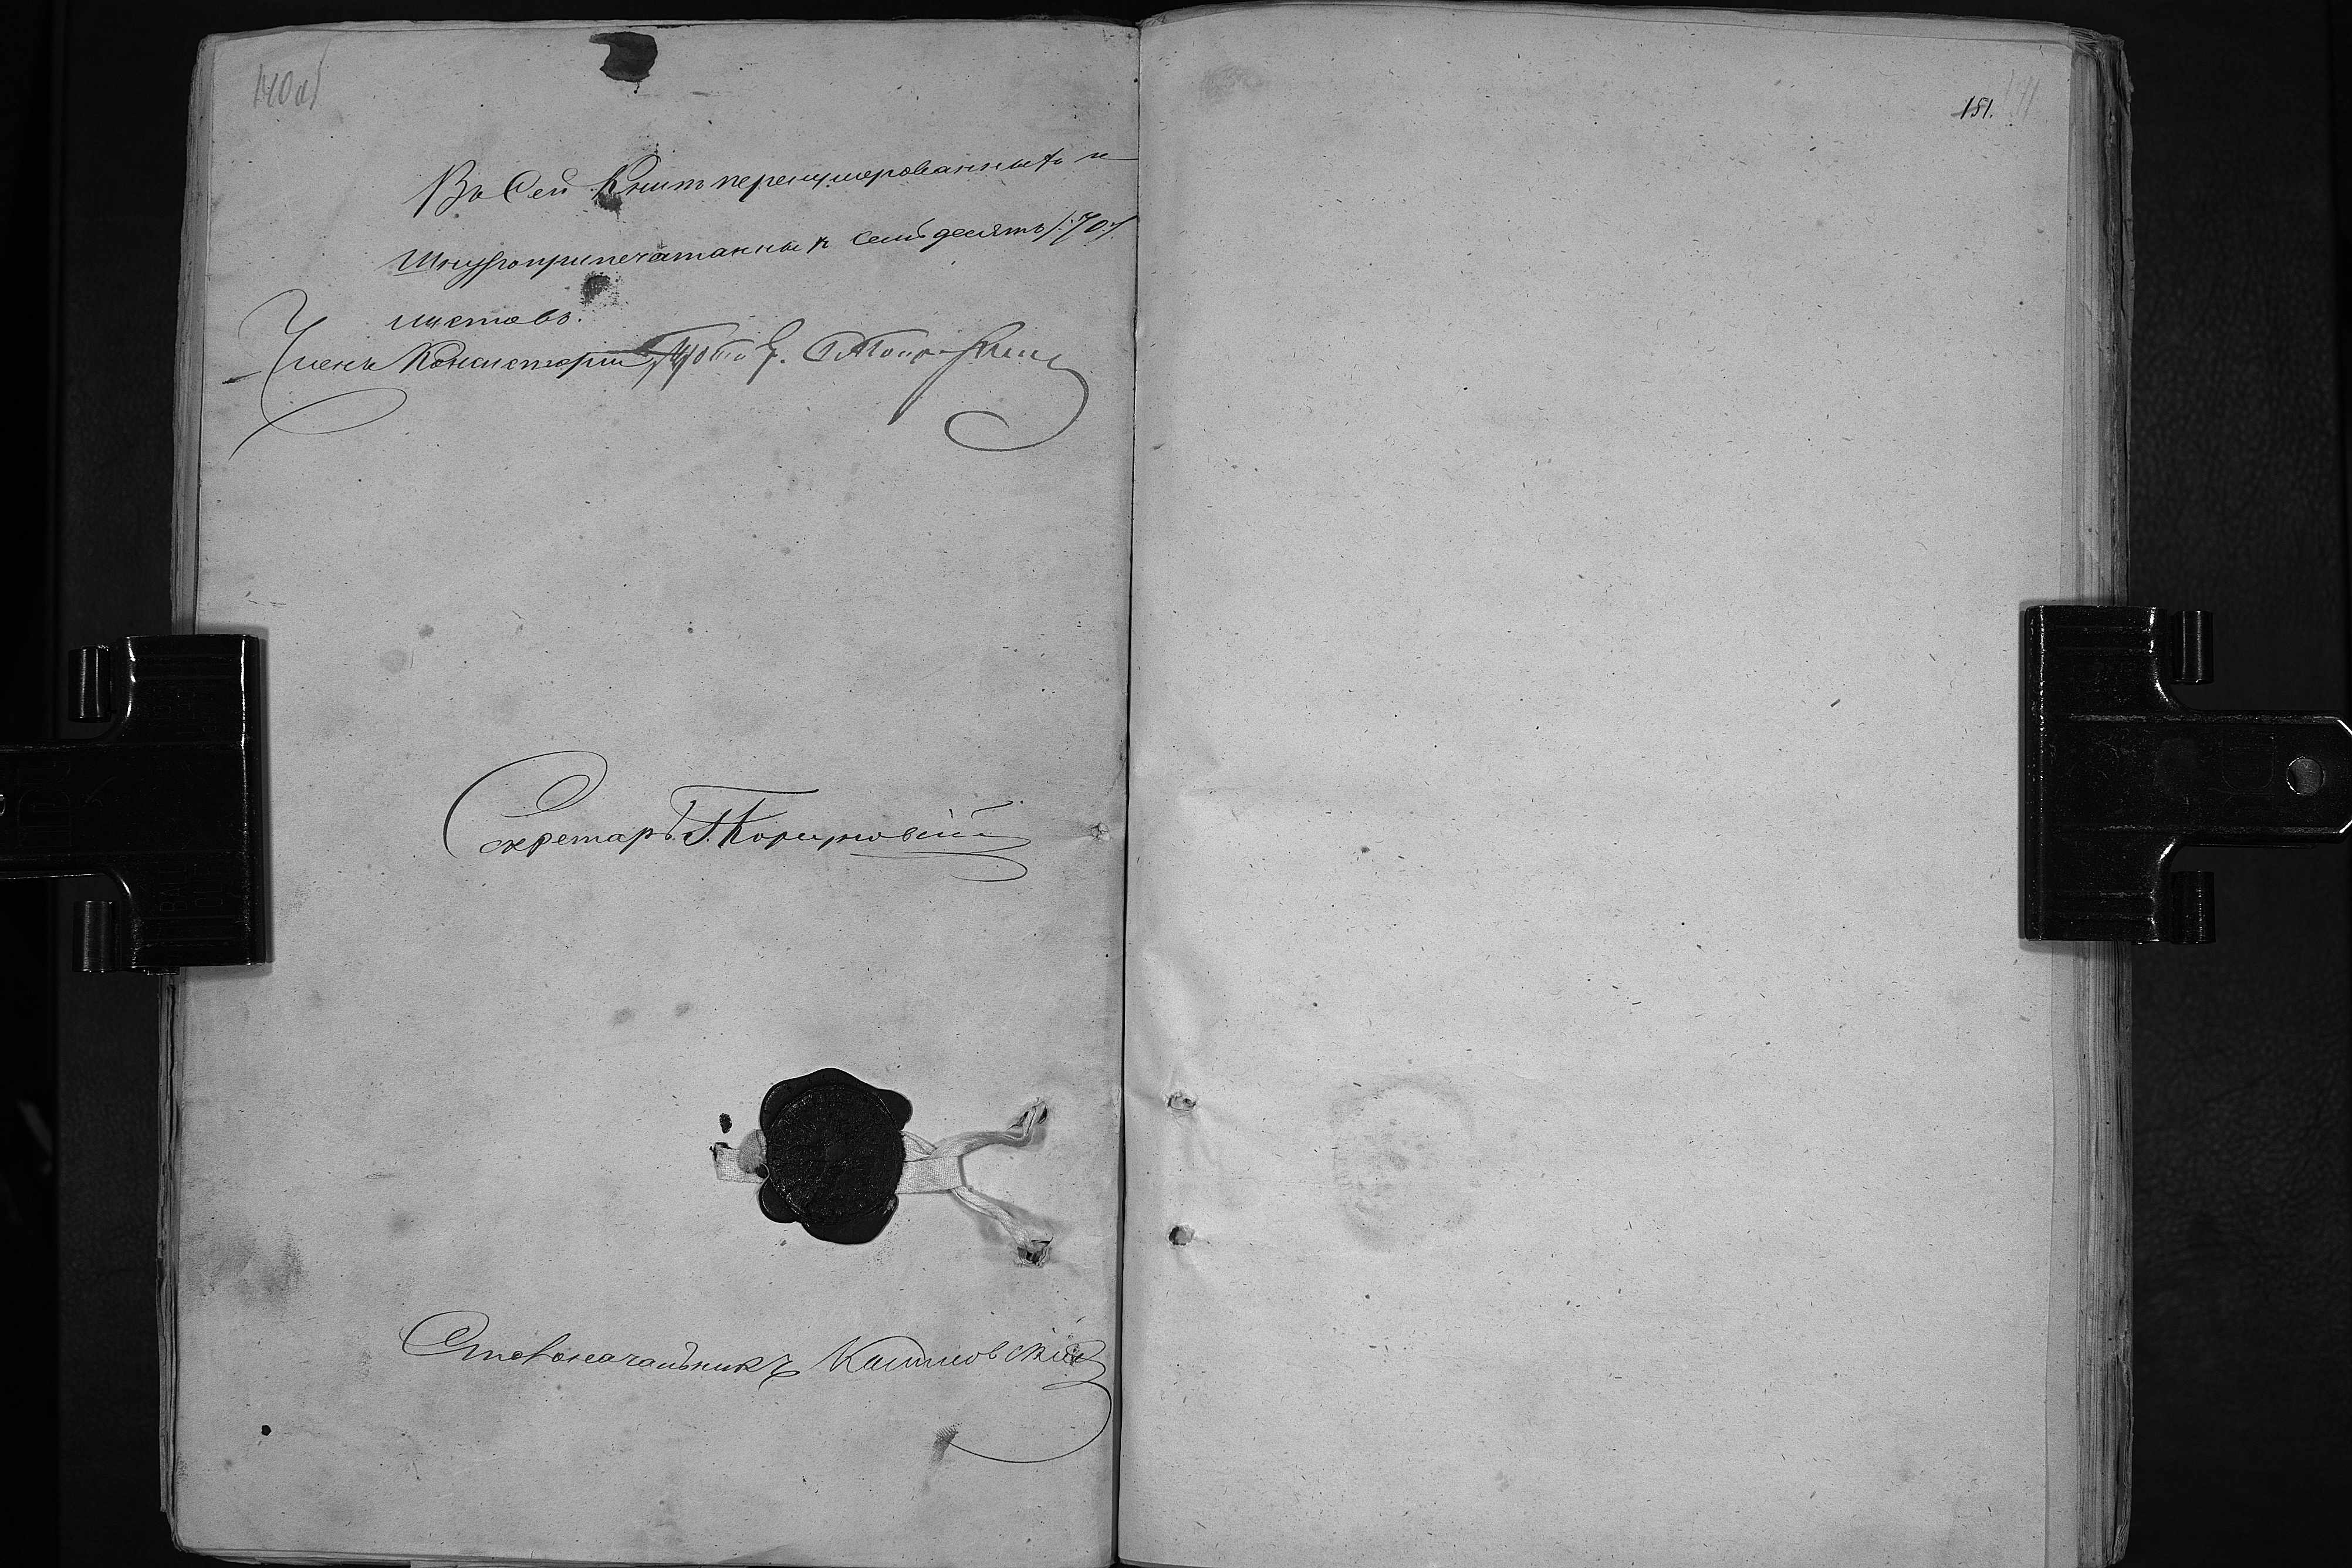 140об
Въ Сей Книгѣ перенумерованныхъ и
Шнуроприпечатанныхъ семьдесятъ /:70:/
листовъ.
Членъ Консисторіи
Секретарь
Столоначальникъ
151.
141